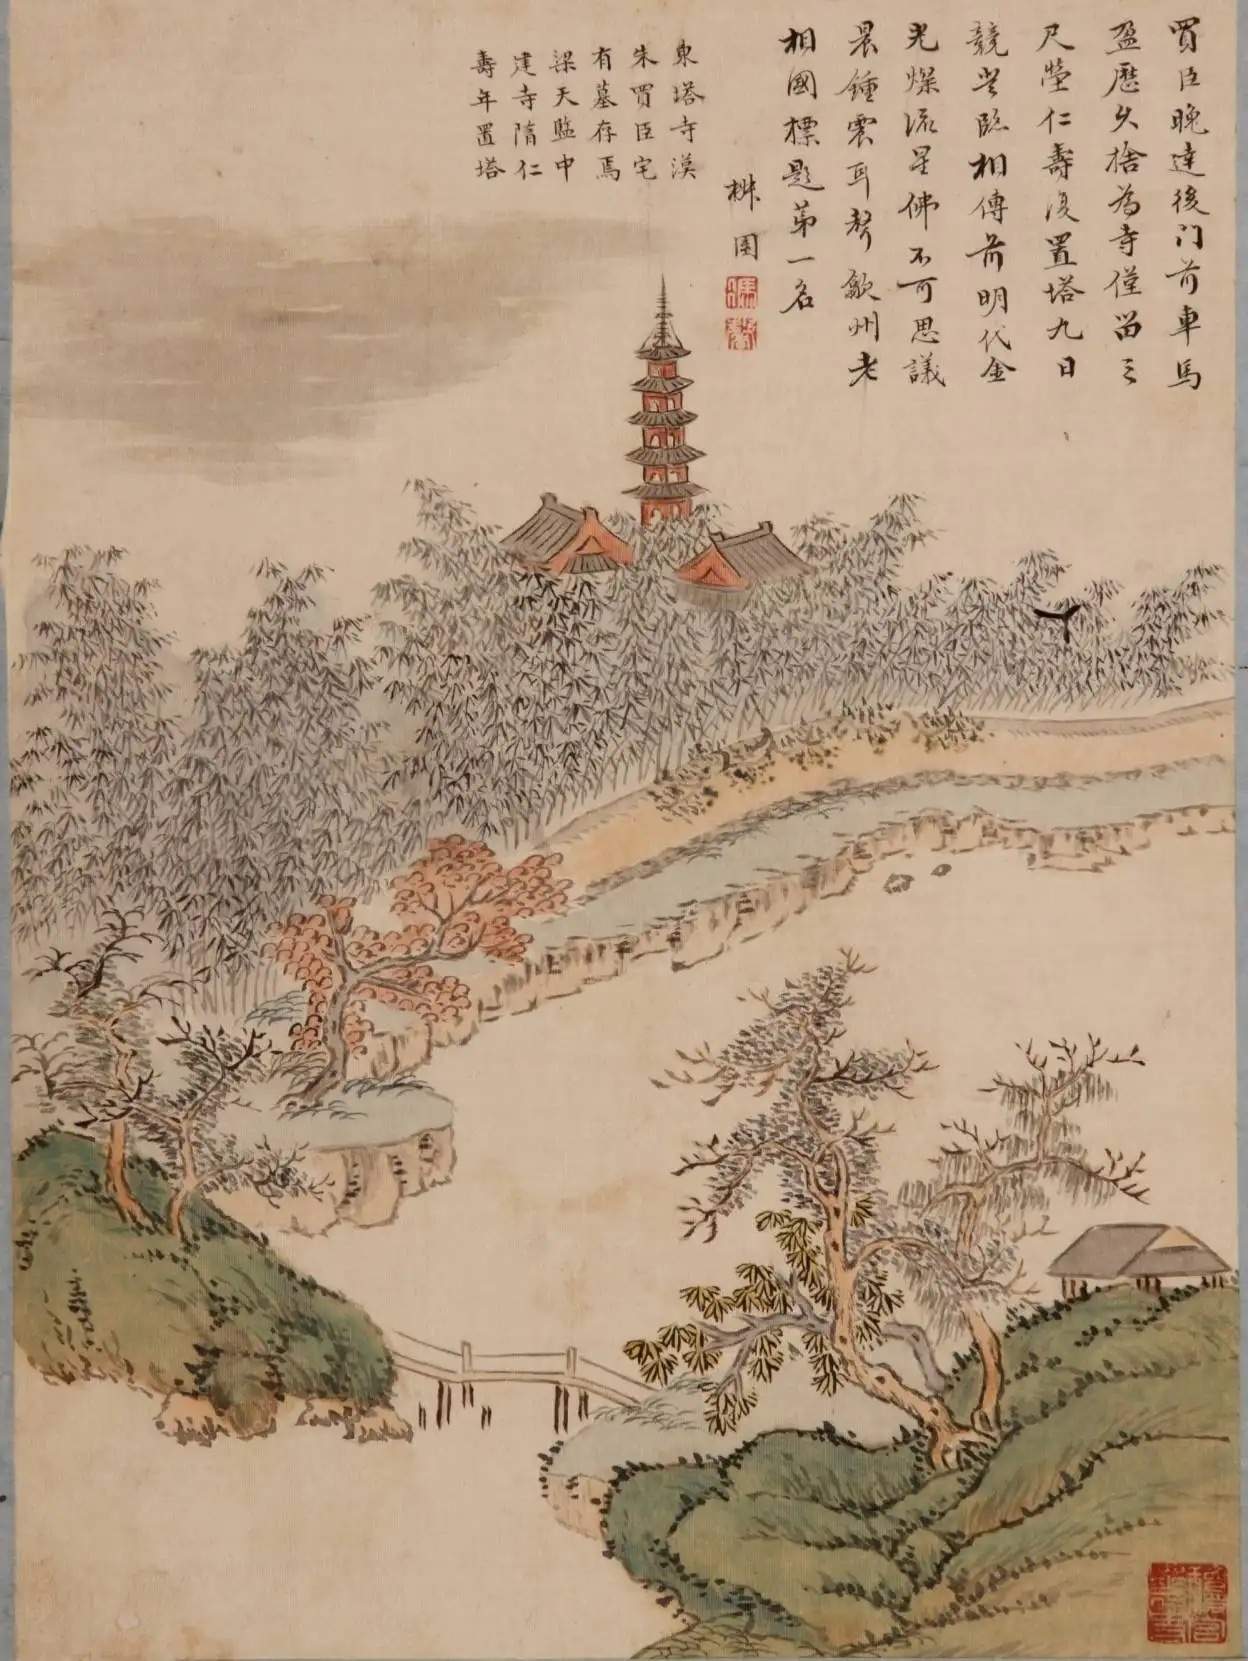 買臣晚達後門前車馬
盈歷久捨為寺僅留三
尺塋仁壽復置塔九日
競登臨相傳前明代金
光燦流星佛不可思議
晨鐘震耳聲歙州老
相國標題第一名
楙園
東塔寺漢
朱買臣宅
有墓存焉
梁天監中
建寺隋仁
壽年置塔